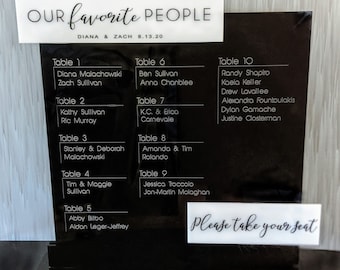 OUR favorite PEOPLE
DIANA & ZACH 8.15.20
Table 1
Diana Malachowski
Zach Sullivan
Table 2
Kathy Sullivan
Ric Murray
Table 3
Stanley & Deborah
Malachowski
Table 4
Tim & Maggie
Sullivan
Table 5
Abby Bilbo
Aidan Leger-Jeffrey
Table 6
Ben Sullivan
Anna Chanblee
Table 7
K.C. & Erica
Carnevale
Table 8
Amanda & Tim
Rolando
Table 9
Jessica Toccolo
Jon-Martin Monaghan
Table 10
Randy Shapiro
Kaela Keller
Drew Lavallee
Alexandra Fountoulakis
Dylan Gamache
Justine Closterman
Please take your seat